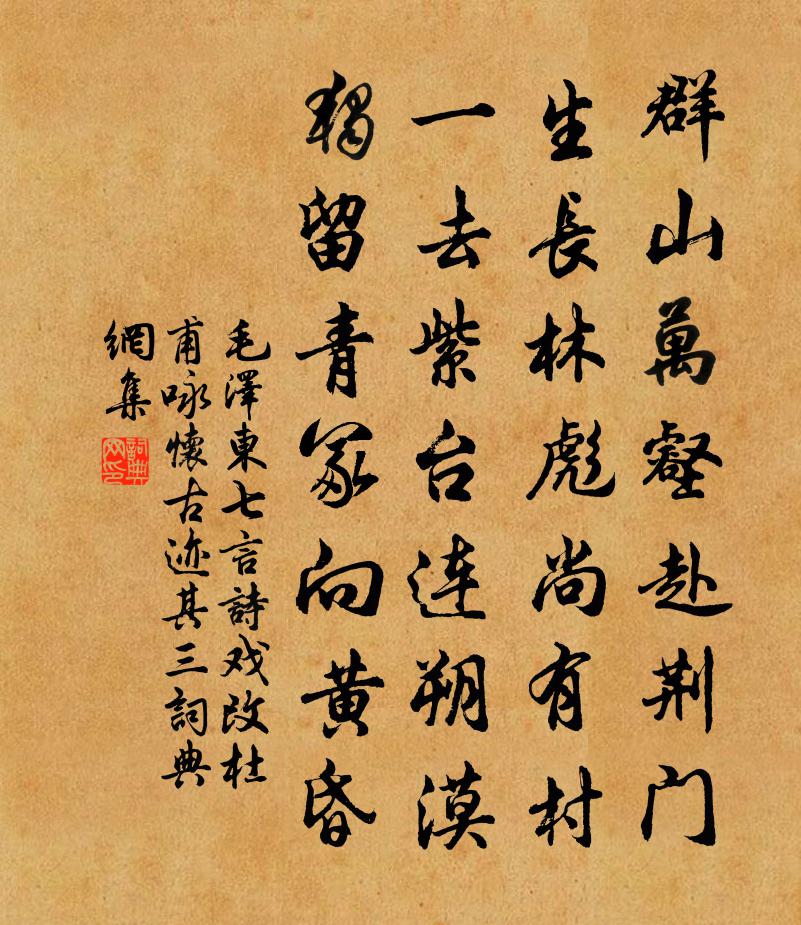 群山萬壑赴荆门
生長林彪尚有村
一去紫台连朔漠
獨留青冢向黄昏
毛澤東七言詩戏改杜
甫咏懷古迹其三詞典
網集
詞典网印